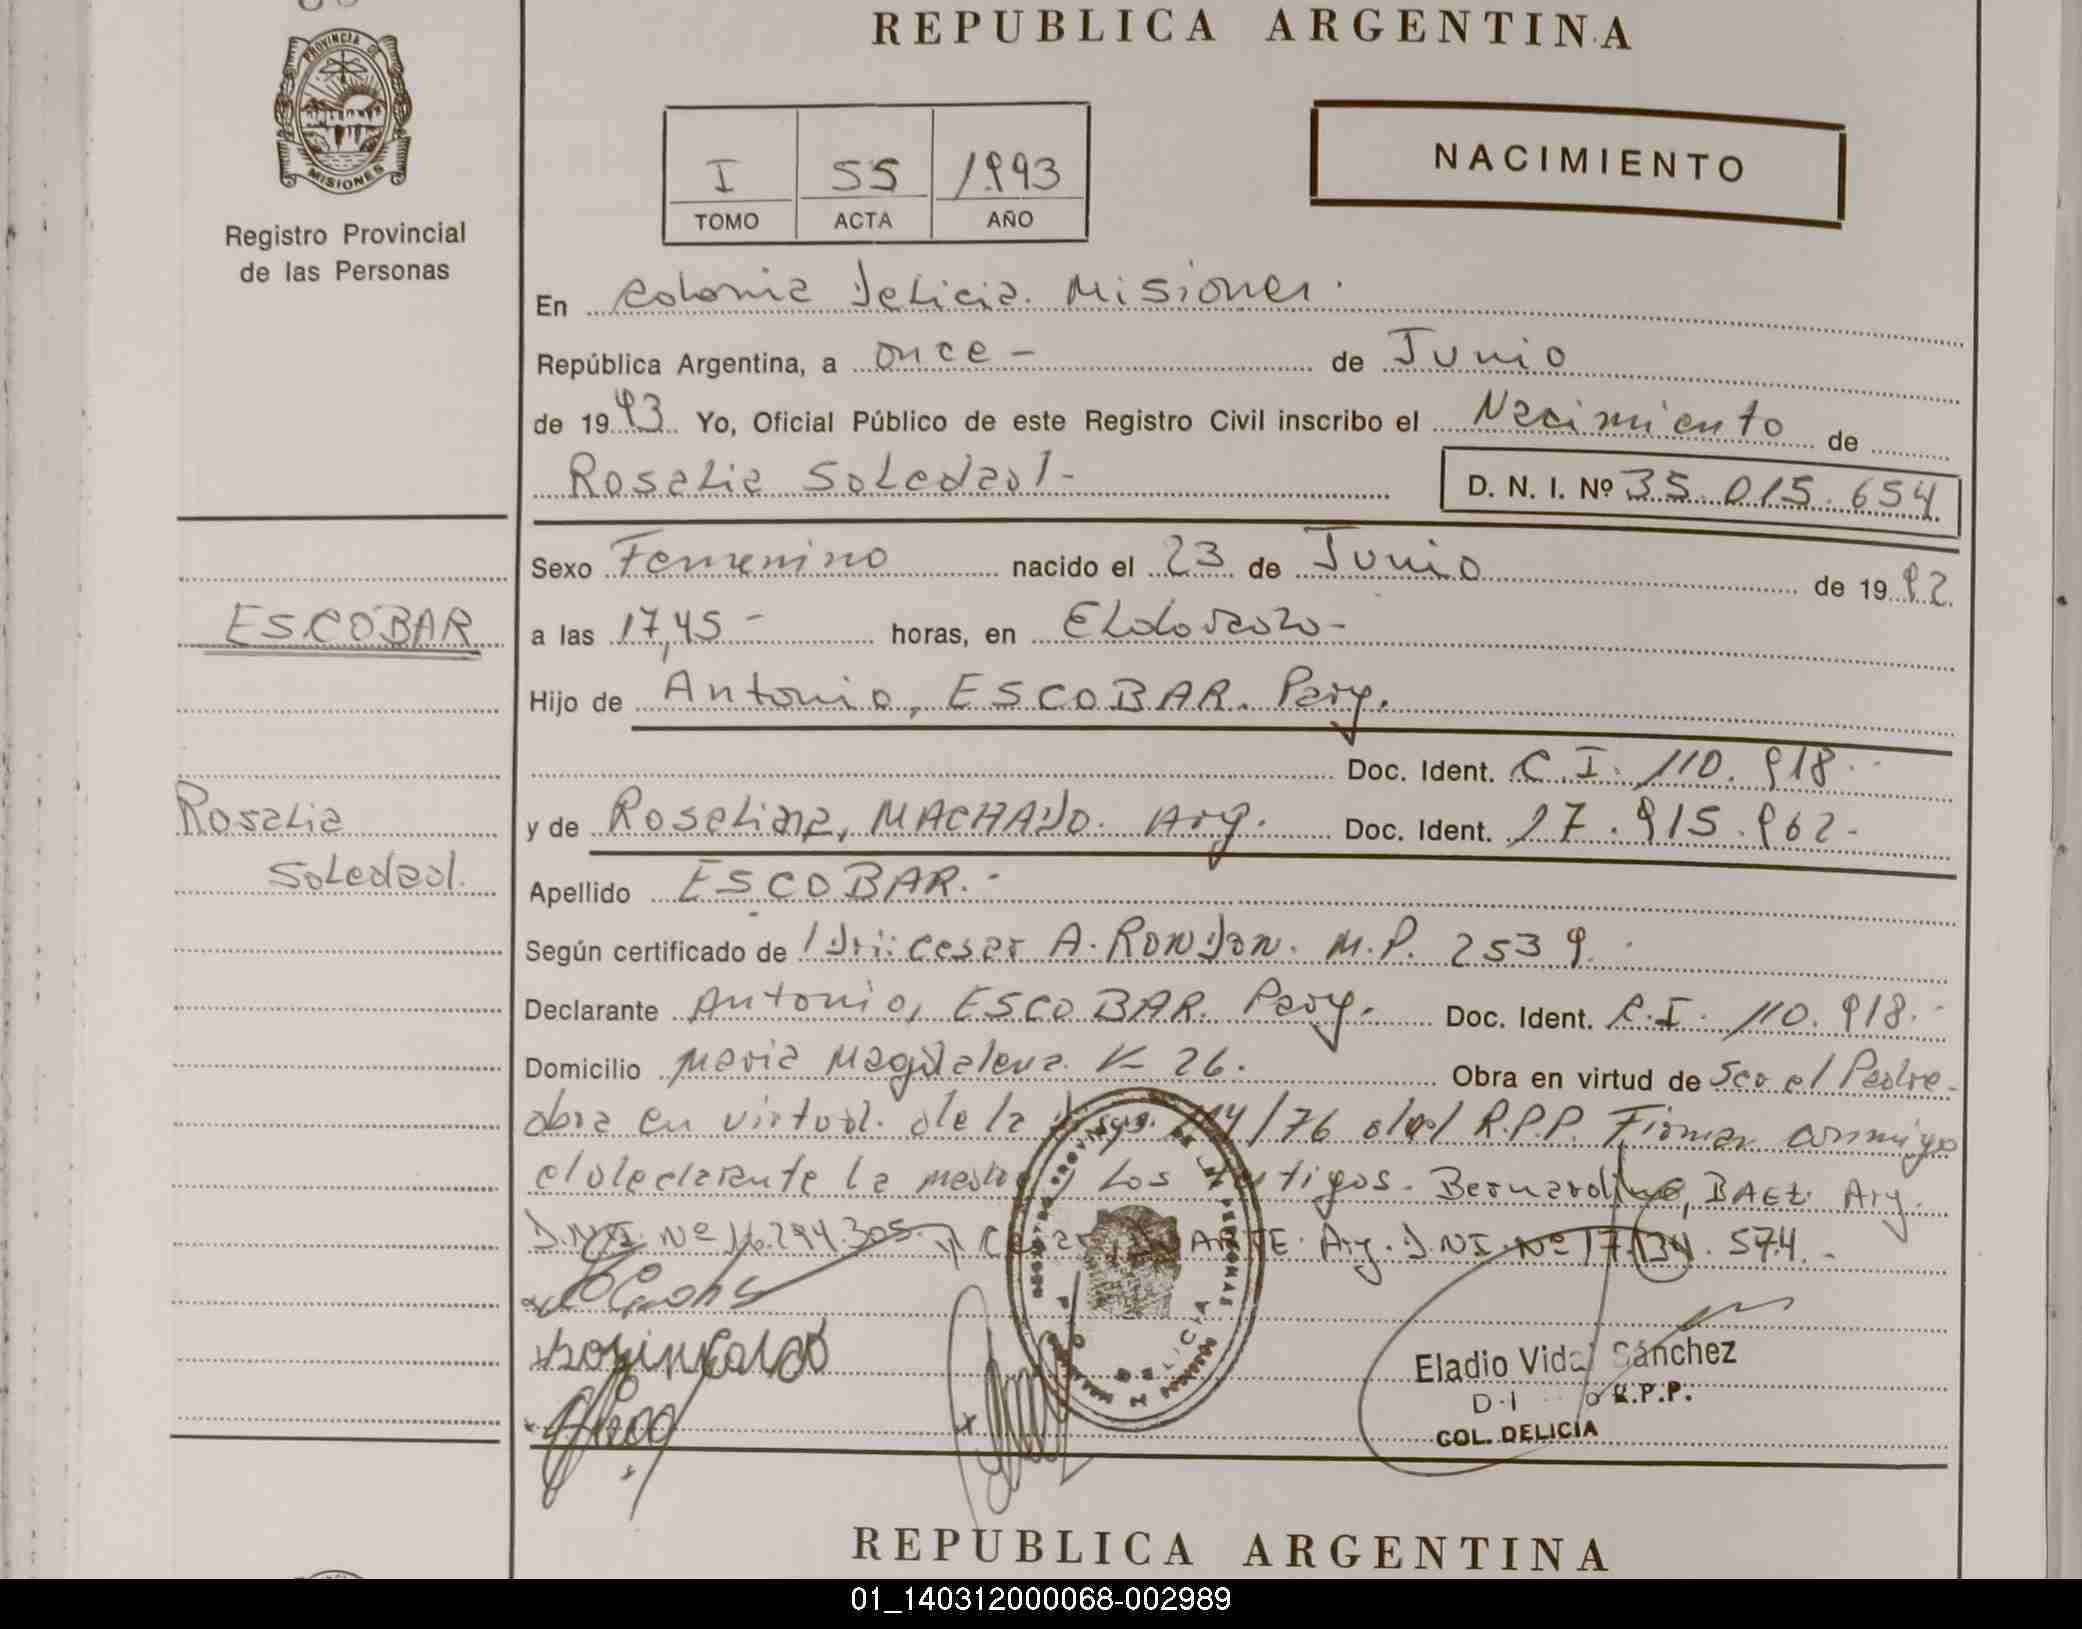 REPUBLICA ARGENTINA
PROVINCIA DE
MISIONES
Registro Provincial
de las Personas
I 55 1993
TOMO ACTA AÑO
NACIMIENTO
En Colonia Delicia. Misiones.
República Argentina, a once - de Junio
de 1993. Yo, Oficial Público de este Registro Civil inscribo el Nacimiento de
Rosalia Soledad - D. N. I. Nº 35.015.654
Sexo Femenino nacido el 23 de Junio de 1992.
ESCOBAR
a las 17,45 - horas, en Eldorado -
Hijo de Antonio, ESCOBAR. Pary.
Doc. Ident. C.I. 110.918.
Rosalia
Soledad.
y de Roseliana, MACHADO. Arg. Doc. Ident. 17.915.962-
Apellido ESCOBAR.-
Según certificado de Dr: Cesar A. RONDON. M.P. 2539.
Declarante Antonio, ESCOBAR. Pary. Doc. Ident. C.I. 110.918.-
Domicilio Maria Magdalena K 26. Obra en virtud de Sco el Padre-
obra en virtud. de la 114/76 del R.P.P. Firman conmigo
el declarante la madre y Los testigos. Bernardino, BAEZ. Arg.
D.N.I. Nº 16.294.305. Arg. D.NI. Nº 17.134.574.-
REGISTRO PROVINCIAL DE LAS PERSONAS
DELICIA
MISIONES
Eladio Vidal Sánchez
R.P.P.
COL. DELICIA
REPUBLICA ARGENTINA
01_140312000068-002989